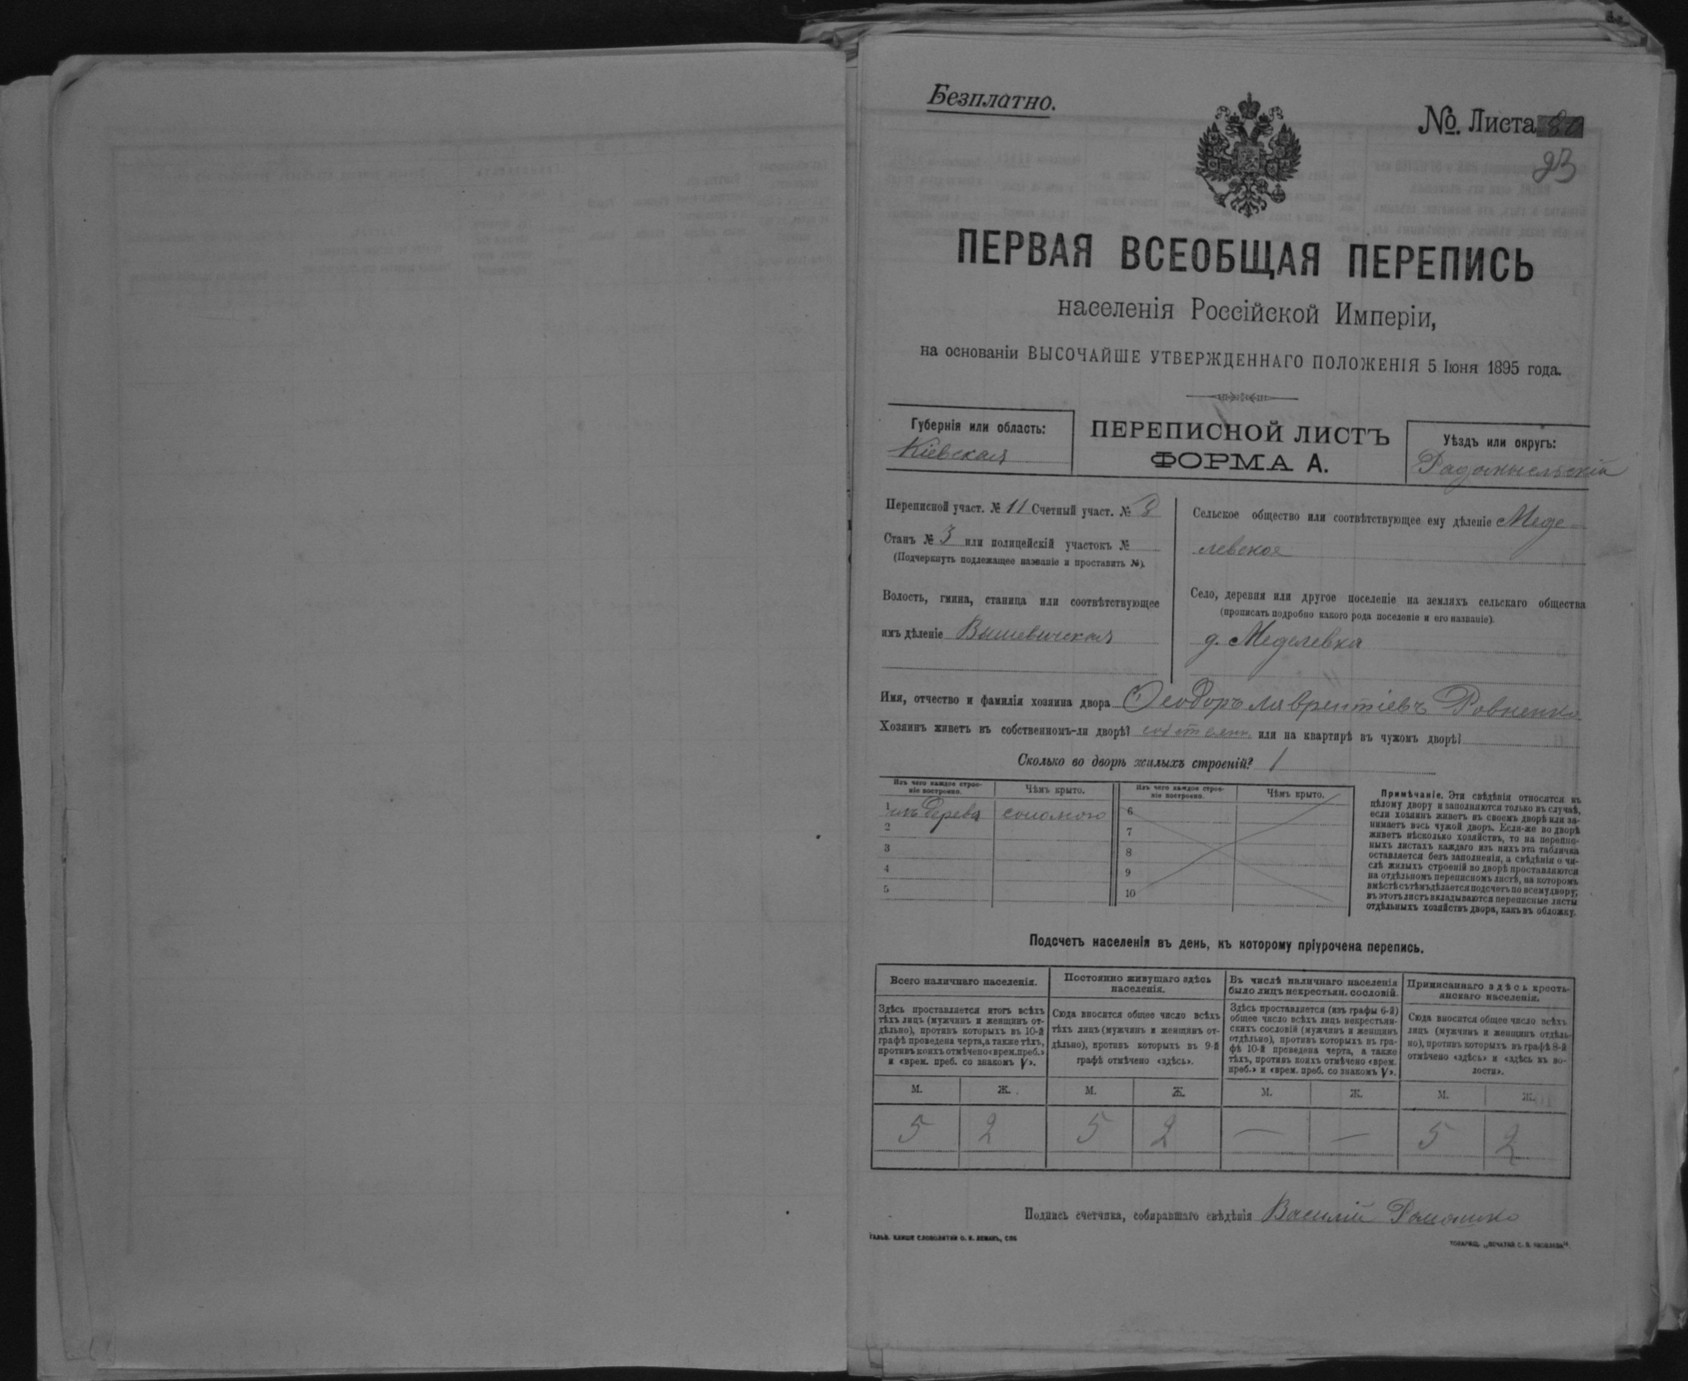 Безплатно.
№. Листа
23
ПЕРВАЯ ВСЕОБЩАЯ ПЕРЕПИСЬ
населенія Россійской Имперіи,
на основаніи ВЫСОЧАЙШЕ УТВЕРЖДЕННАГО ПОЛОЖЕНІЯ 5 Іюня 1895 года.
Губернія или область:
Кіевская
ПЕРЕПИСНОЙ ЛИСТЪ
ФОРМА А.
Уѣздъ или округъ:
Радомысльскій
Переписной участ. № 11 Счетный участ. № 3
Станъ № 3 или полицейскій участокъ №
(Подчеркнуть подлежащее названіе и проставить №).
Волость, гмина, станица или соотвѣтствующее
имъ дѣленіе Вышевичская
Сельское общество или соотвѣтствующее ему дѣленіе Меде-
левское
Село, деревня или другое поселеніе на земляхъ сельскаго общества
(прописать подробно какого рода поселеніе и его названіе).
д. Меделевка
Имя, отчество и фамилія хозяина двора Ѳеодоръ Лаврентіевъ Ровненко
Хозяинъ живетъ въ собственномъ-ли дворѣ? собствен. или на квартирѣ въ чужомъ дворѣ?
Сколько во дворѣ жилыхъ строеній? 1
Изъ чего каждое строе-
ніе построено.
Чѣмъ крыто.
1 изъ дерева соломою
2
3
4
5
Изъ чего каждое строе-
ніе построено.
Чѣмъ крыто.
6
7
8
9
10
Примѣчаніе. Эти свѣдѣнія относятся къ
цѣлому двору и заполняются только въ случаѣ,
если хозяинъ живетъ въ своемъ дворѣ или за-
нимаетъ весь чужой дворъ. Если-же во дворѣ
живетъ нѣсколько хозяйствъ, то на перепис-
ныхъ листахъ каждаго изъ нихъ эта табличка
оставляется безъ заполненія, а свѣдѣнія о чи-
слѣ жилыхъ строеній во дворѣ проставляются
на отдѣльномъ переписномъ листѣ, на которомъ
вмѣстѣ съ тѣмъ дѣлается подсчетъ по всему двору;
въ этотъ листъ вкладываются переписные листы
отдѣльныхъ хозяйствъ двора, какъ въ обложку.
Подсчетъ населенія въ день, къ которому пріурочена перепись.
Всего наличнаго населенія.
Здѣсь проставляется итогъ всѣхъ
тѣхъ лицъ (мужчинъ и женщинъ от-
дѣльно), противъ которыхъ въ 10-й
графѣ проведена черта, а также тѣхъ,
противъ коихъ отмѣчено «врем. преб.»
и «врем. преб. со знакомъ V».
М. Ж.
5 2
Постоянно живущаго здѣсь
населенія.
Сюда вносится общее число всѣхъ
тѣхъ лицъ (мужчинъ и женщинъ от-
дѣльно), противъ которыхъ въ 9-й
графѣ отмѣчено «здѣсь».
М. Ж.
5 2
Въ числѣ наличнаго населенія
было лицъ некрестьян. сословій.
Здѣсь проставляется (изъ графы 6-й)
общее число всѣхъ лицъ некрестьян-
скихъ сословій (мужчинъ и женщинъ
отдѣльно), противъ которыхъ въ гра-
фѣ 10-й проведена черта, а также
тѣхъ, противъ коихъ отмѣчено «врем.
преб.» и «врем. преб. со знакомъ V».
М. Ж.
— —
Приписаннаго здѣсь кресть-
янскаго населенія.
Сюда вносится общее число всѣхъ
лицъ (мужчинъ и женщинъ отдѣль-
но), противъ которыхъ въ графѣ 8-й
отмѣчено «здѣсь» и «здѣсь въ во-
лости».
М. Ж.
5 2
Подпись счетчика, собиравшаго свѣдѣнія Василій Романко
ГАЛЬВ. КЛИШЕ СЛОВОЛИТНИ О. И. ЛЕМАНЪ, СПБ
ТОВАРИЩ. „ПЕЧАТНЯ С. П. ЯКОВЛЕВА“